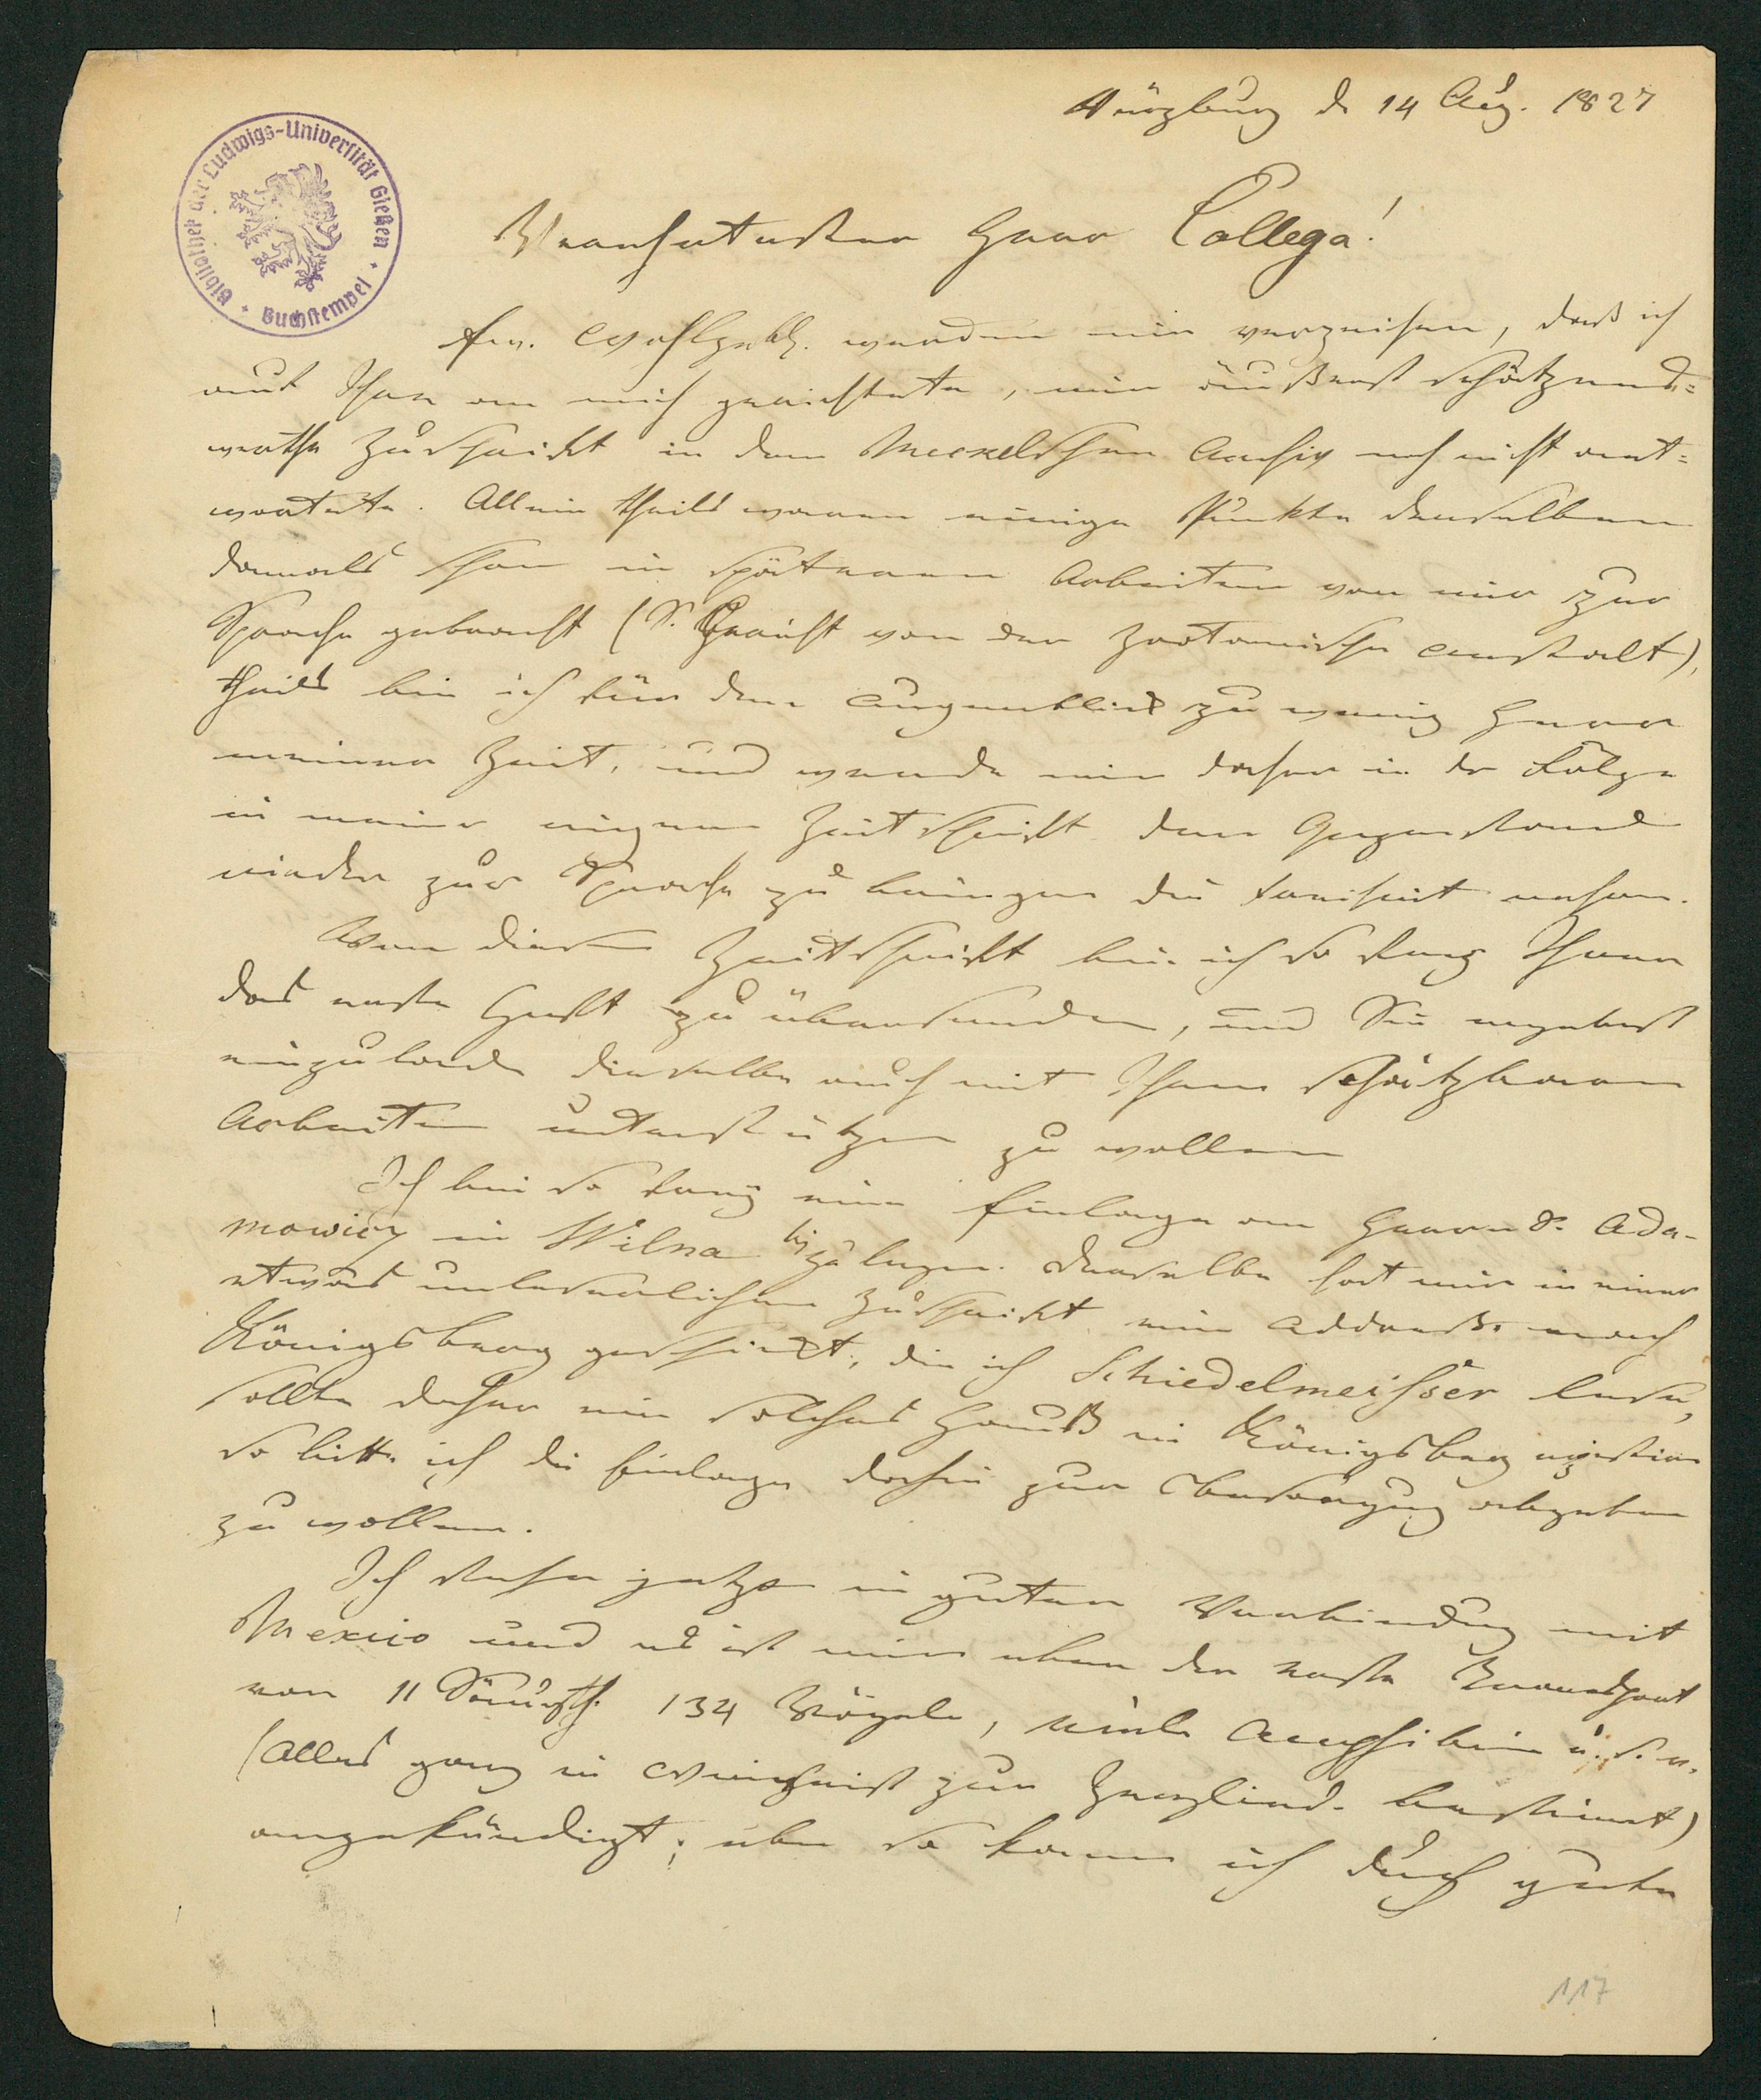 Würzburg d. 14 Aug. 1827
Bibliothek der Ludwigs-Universität Gießen
Buchstempel
Verehrtester Herr Collega!
Ew. Wohlgeb. werden mir verzeihen, daß ich
auf Ihre an mich gerichtete, mir äußerst schätzens=
werthe Zuschrift in dem Meckelschen Archiv noch nicht ant=
wortete. Allein theils waren einige Punkte derselben
damals schon in späteren Arbeiten von mir zur
Sprache gebracht (S. Bericht von der zootomischen Anstalt),
theils bin ich für den Augenblick zu wenig Herr
meiner Zeit, und werde mir daher in der Folge
in meiner eignen Zeitschrift den Gegenstand
wieder zur Sprache zu bringen die Freiheit nehmen.
Von dieser Zeitschrift bin ich so frey Ihnen
das erste Heft zu übersenden, und Sie ergebenst
einzuladen dieselbe auch mit Ihren schätzbaren
Arbeiten unterstützen zu wollen
Ich bin so frey eine Einlage an Herrn Dr. Ada-
mowicz in Wilna beyzulegen. Derselbe hat mir in einer
etwas unleserlichen Zuschrift eine Addresse nach
Königsberg geschickt, die ich Schiedelmeisser lese,
sollte daher ein solches Hauß in Königsberg existiren
so bitte ich die Einlage dahin zur Besorgung abgeben
zu wollen.
Ich stehe jetzo in guter Verbindung mit
Mexico und es ist mir eben der erste Transport
von 11 Säugth. 134 Vögeln, viele Amphibien u. s. w.
(Alles ganz in Weingeist zur Zerglied. bestimt)
angekündigt; eben so kann ich durch gute
117